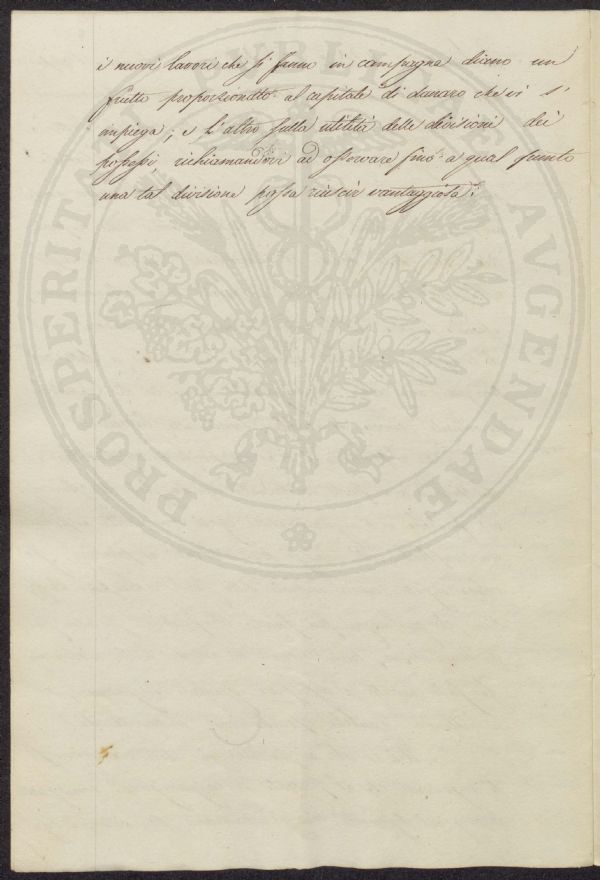 i nuovi lavori che si fanno in campagna dieno un
frutto proporzionato al capitale di danaro che vi s'
impiega; e l'altro sulla utilità delle divisioni dei
possessi, richiamandovi ad osservare sino a qual punto
una tal divisione possa riuscir vantaggiosa.
PROSPERITATI PUBLICAE AVGENDAE